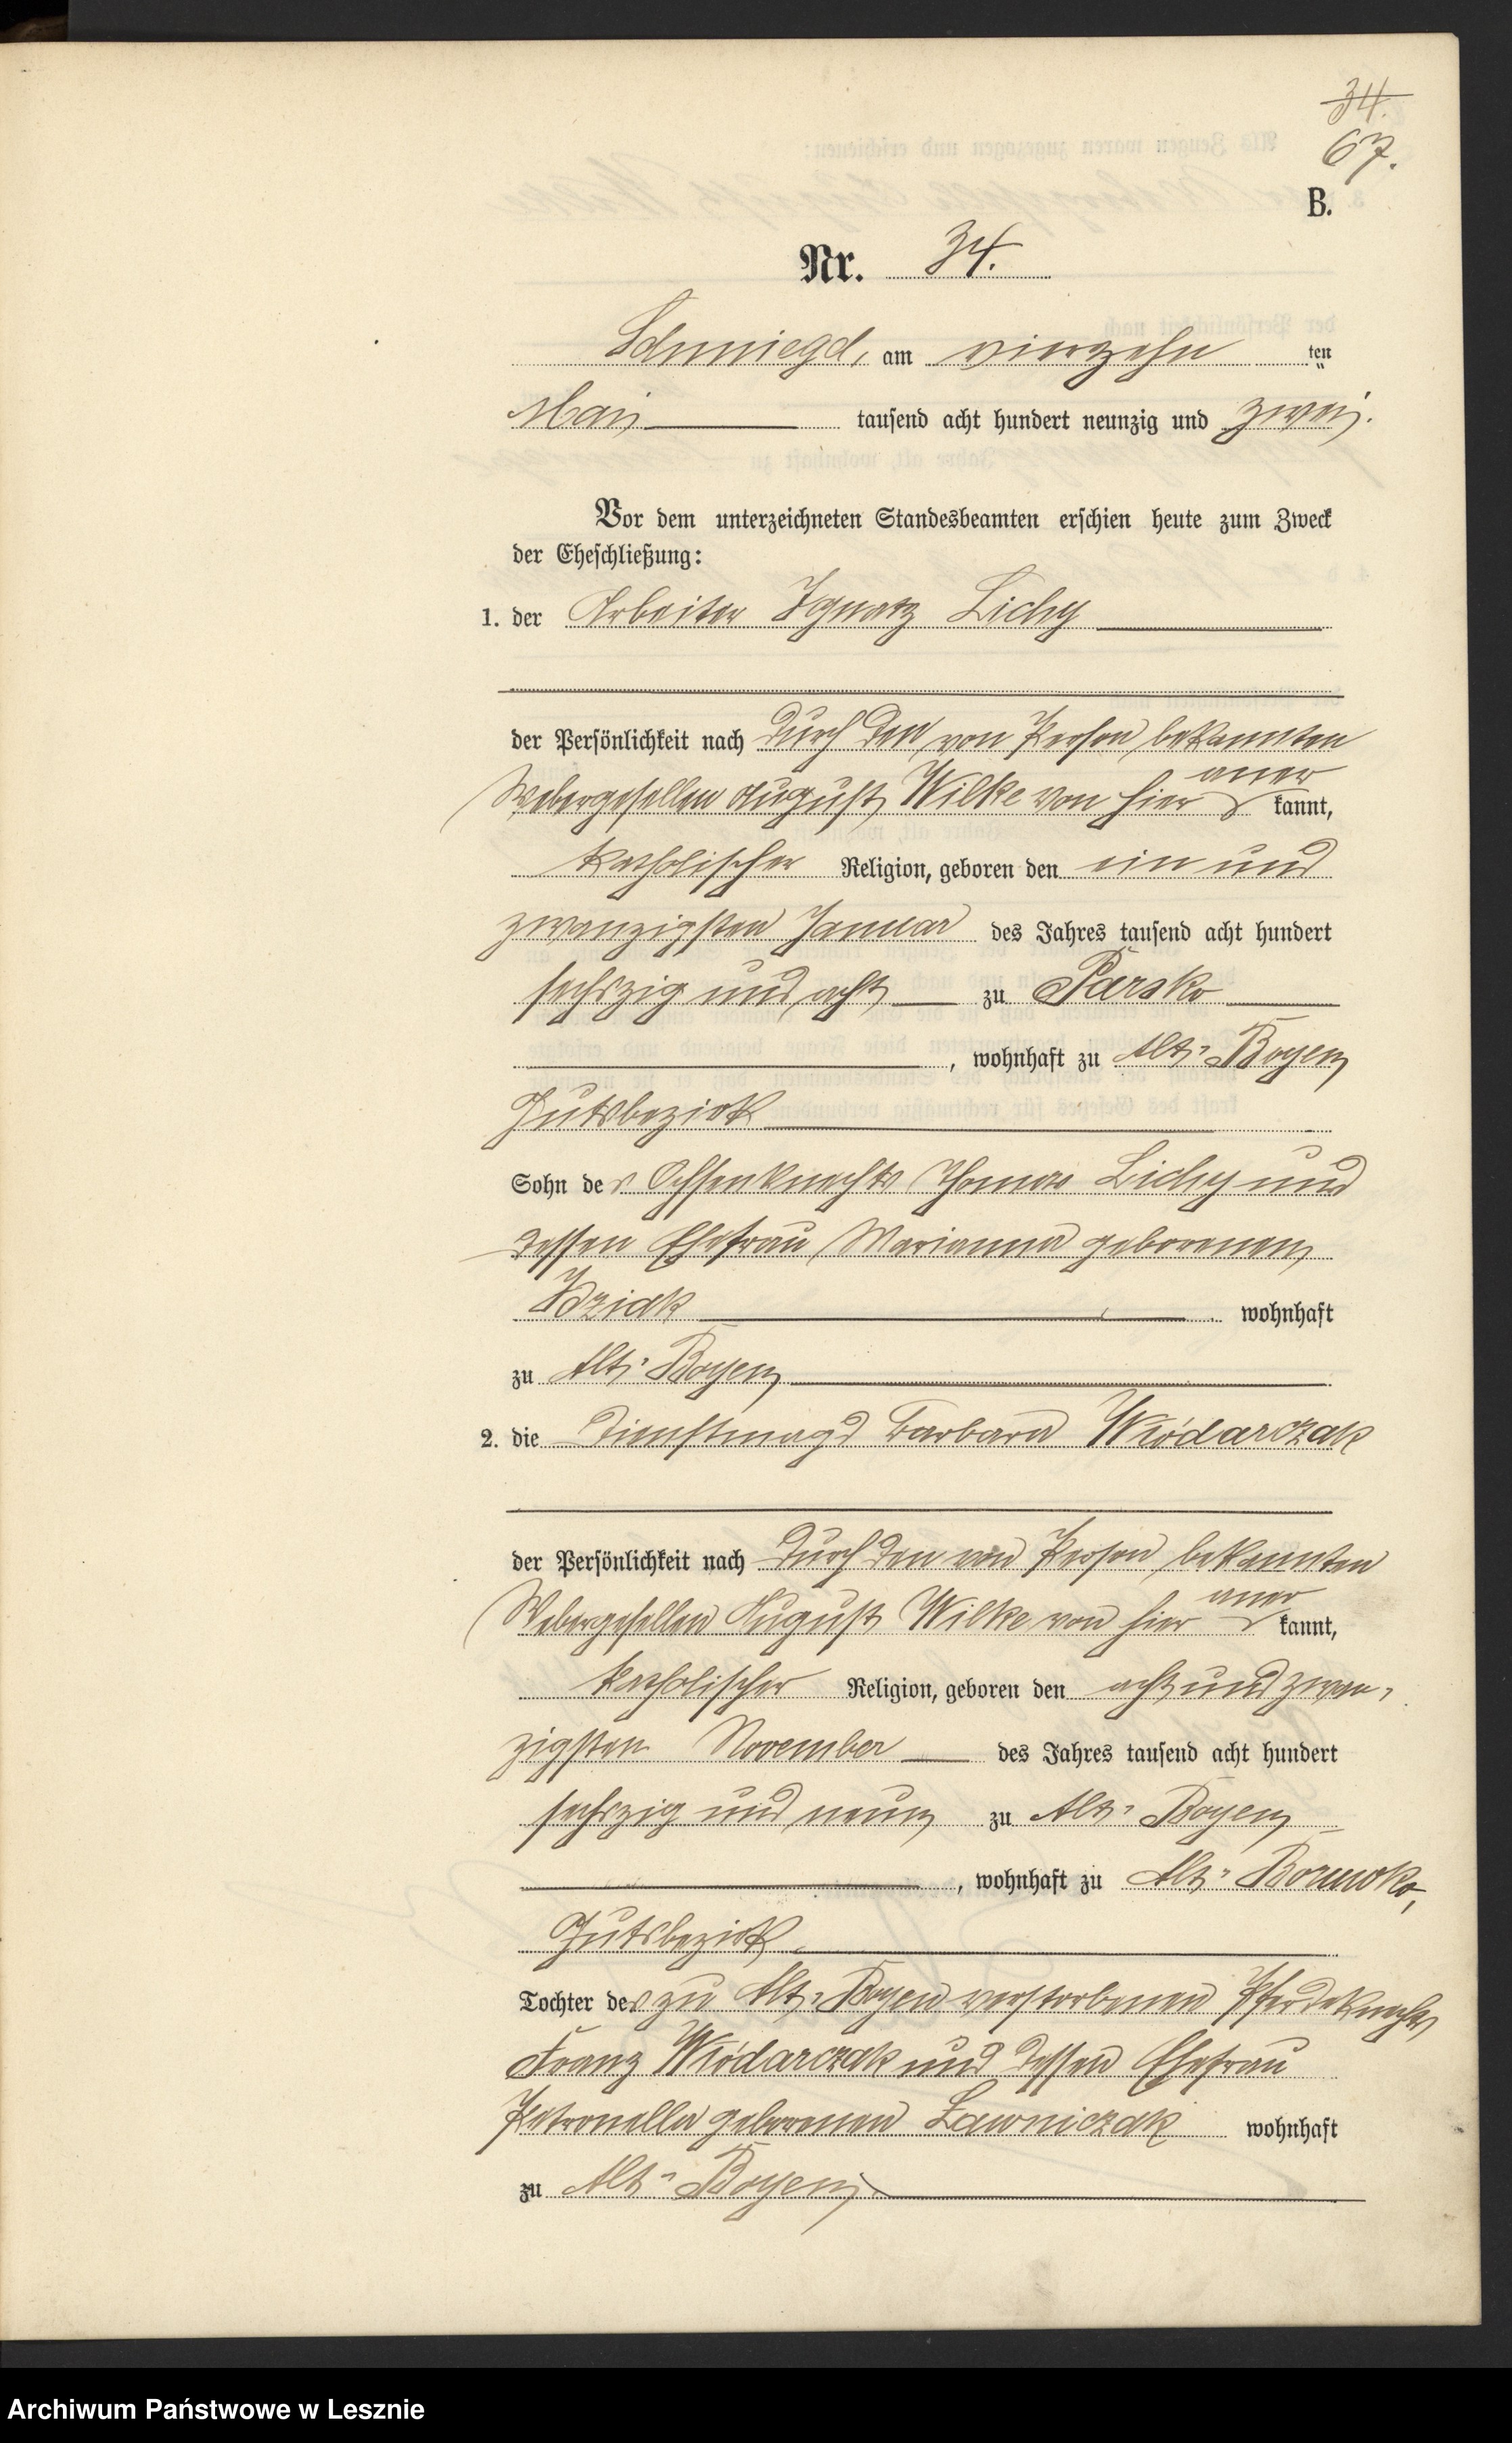 34.
67.
B.
Nr. 34.
Schmiegel, am vierzehnten
Mai tausend acht hundert neunzig und zwei.
Vor dem unterzeichneten Standesbeamten erschien heute zum Zweck
der Eheschließung:
1. der Arbeiter Ignatz Lichy
der Persönlichkeit nach durch den von Person bekannten
Webergesellen August Wilke von hier anerkannt,
katholischer Religion, geboren den ein und
zwanzigsten Januar des Jahres tausend acht hundert
sechszig und acht zu Parsko
, wohnhaft zu Alt-Boyen
Gutsbezirk
Sohn des Ochsenknechts Thomas Lichy und
dessen Ehefrau Marianna geborenen
wohnhaft
zu Alt-Boyen
2. die Dienstmagd Barbara Włódarczak
der Persönlichkeit nach durch den von Person bekannten
Webergesellen August Wilke von hier anerkannt,
katholischer Religion, geboren den acht und zwan-
zigsten November des Jahres tausend acht hundert
sechszig und neun zu Alt-Boyen
, wohnhaft zu Alt-
Gutsbezirk
Tochter des zu Alt-Boyen verstorbenen Pferdeknechts
Franz Włódarczak und dessen Ehefrau
Petronella geborenen Ławniczak wohnhaft
zu Alt-Boyen.
Archiwum Państwowe w Lesznie